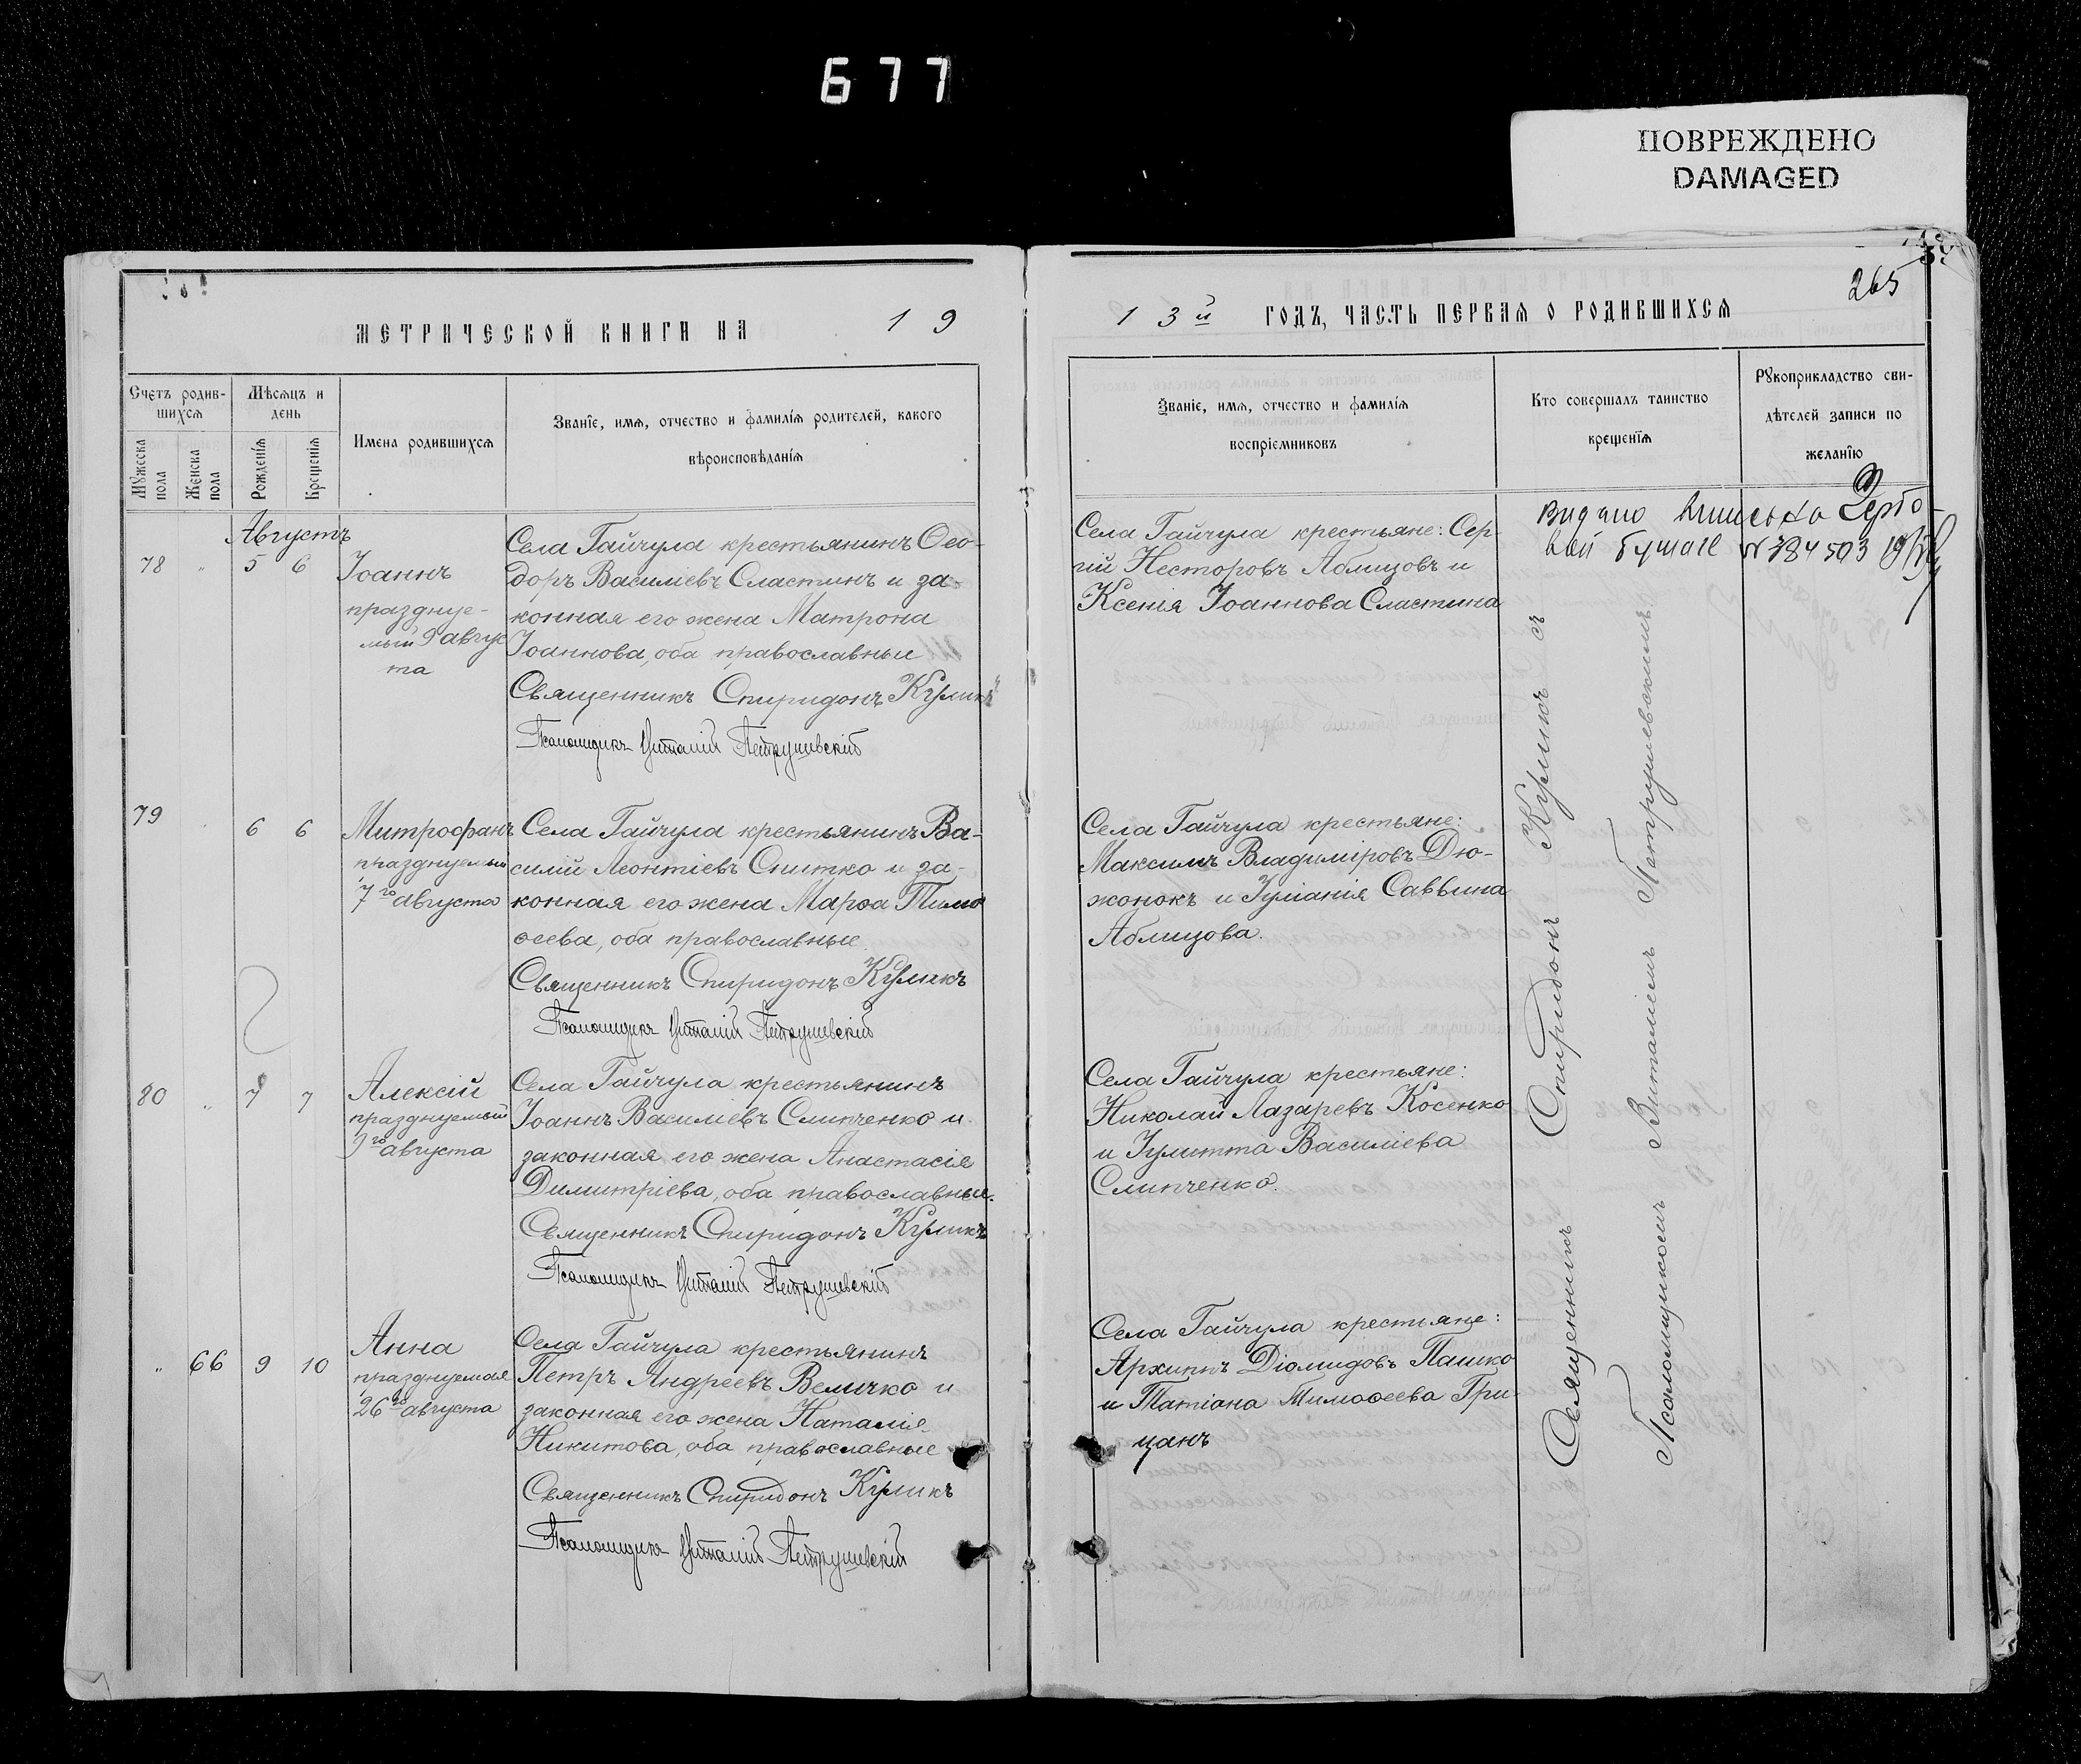 677
ПОВРЕЖДЕНО
DAMAGED
265
МЕТРИЧЕСКОЙ КНИГИ НА 19
13й ГОДЪ, ЧАСТЬ ПЕРВАЯ О РОДИВШИХСЯ
Счетъ родив-
шихся
Мужеска пола
Женска пола
Мѣсяцъ и
день
Рожденія
Крещенія
Имена родившихся
Званіе, имя, отчество и фамилія родителей, какого
вѣроисповѣданія
Званіе, имя, отчество и фамилія
воспріемниковъ
Кто совершалъ таинство
крещенія
Рукоприкладство сви-
дѣтелей записи по
желанію
Августъ
78 " 5 6
Іоаннъ
празднуе-
мый 9 авгус
та
Села Гайчула крестьянинъ Ѳео-
доръ Василіевъ Сластинъ и за-
конная его жена Матрона
Іоаннова, оба православные
Священникъ Спиридонъ Куликъ
Псаломщикъ Виталій Петрушевскій
Села Гайчула крестьяне: Сер-
гій Несторовъ Аблицовъ и
Ксенія Іоаннова Сластина
79 6 6
Митрофанъ
празднуемый
7го августа
Села Гайчула крестьянинъ Ва-
силій Леонтіевъ Снитко и за-
конная его жена Марѳа Тимо
ѳеева, оба православные.
Священникъ Спиридонъ Куликъ
Псаломщикъ Виталій Петрушевскій
Села Гайчула крестьяне:
Максимъ Владиміровъ Дю-
жонокъ и Іуліанія Саввина
Аблицова.
80 " 7 7
Алексій
празднуемый
9го августа
Села Гайчула крестьянинъ
Іоаннъ Василіевъ Слипченко и
законная его жена Анастасія
Димитріева, оба православные.
Священникъ Спиридонъ Куликъ
Псаломщикъ Виталій Петрушевскій
Села Гайчула крестьяне:
Николай Лазаревъ Косенко
и Іулитта Василіева
Слипченко.
" 66 9 10
Анна
празднуемая
26го августа
Села Гайчула крестьянинъ
Петръ Андреевъ Величко и
законная его жена Наталія
Никитова, оба православные
Священникъ Спиридонъ Куликъ
Псаломщикъ Виталій Петрушевскій
Села Гайчула крестьяне:
Архипъ Діомидовъ Пашко
и Татіана Тимоѳеева Гри-
цанъ
Священникъ Спиридонъ Куликъ съ
Псаломщикомъ Виталіемъ Петрушевскимъ
Видано на Гербо-
вій бумазе № 784503